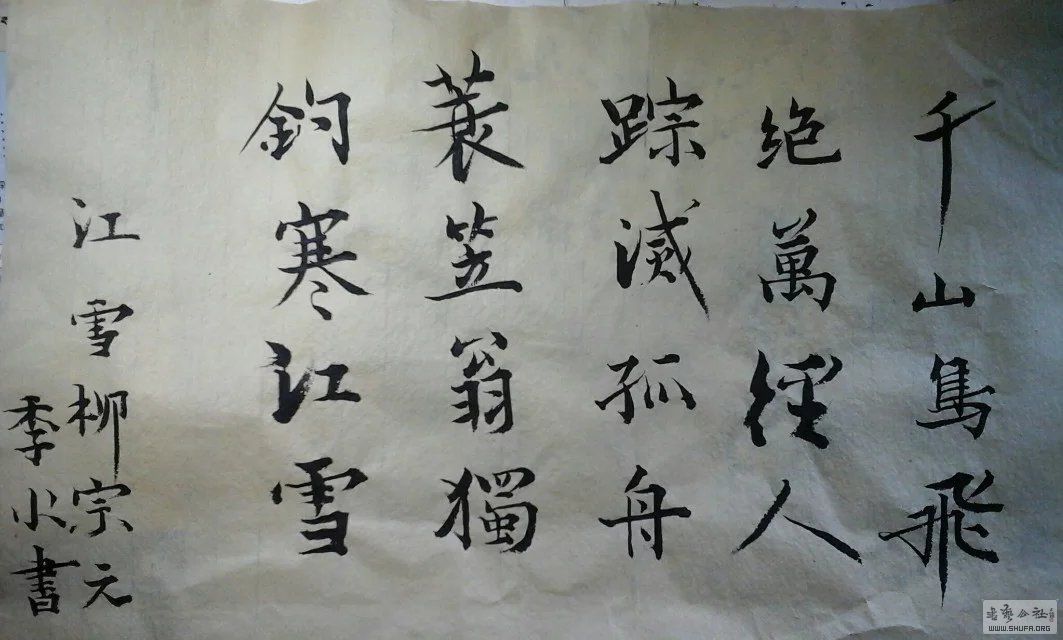 千山鳥飛
絶萬徑人
踪滅孤舟
蓑笠翁獨
釣寒江雪
江雪柳宗元
季小書
WWW.SHUFA.ORG